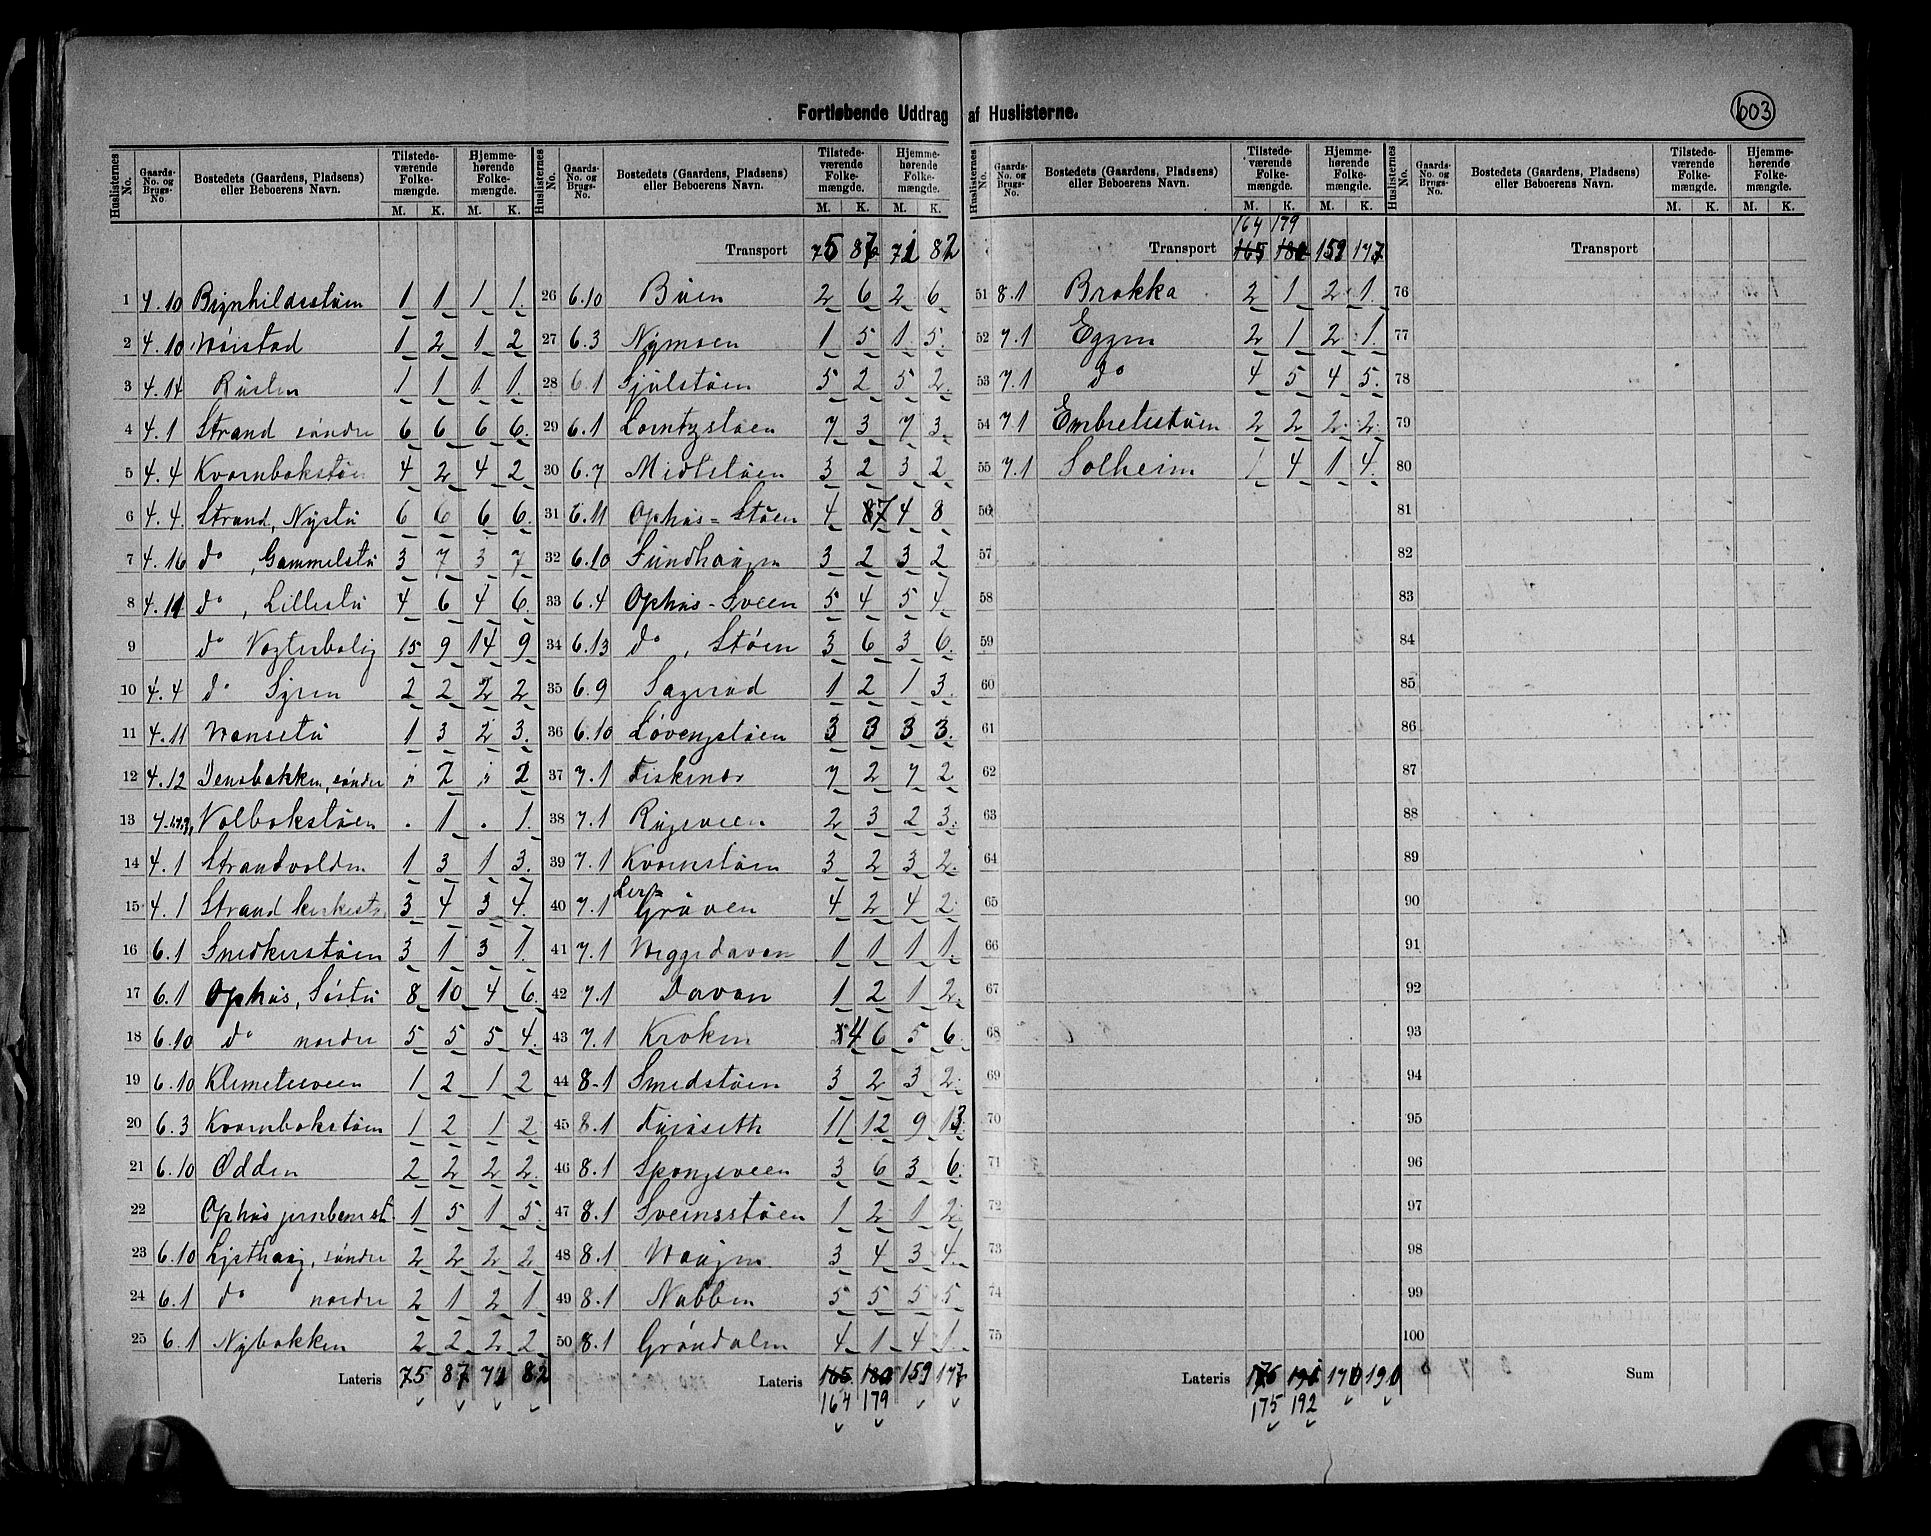 Fortløbende Uddrag af Huslisterne.
603
Huslisternes No. Gaards-No. og Brugs-No. Bostedets (Gaardens, Pladsens) eller Beboerens Navn. Tilstedeværende Folkemængde. M. K. Hjemmehørende Folkemængde. M. K.
1 4.10 Brynhildsstøen 1 1 1 1
2 4.10 1 2 1 2
3 4.14 Rusten 1 1 1 1
4 4.1 Strand søndre 6 6 6 6
5 4.4 Kvernbekstøen 4 2 4 2
6 4.4 Strand, Nystu 6 6 6 6
7 4.16 do , Gammelstu 3 7 3 7
8 4.11 do , Lillestu 4 6 4 6
9 do Vogterbolig 15 9 14 9
10 4.4 do 2 2 2 2
11 4.11 1 3 2 3
12 4.12 søndre " 2 " 2
13 Volbekstøen . 1 . 1
14 4.1 Strandvolden 1 3 1 3
15 4.1 Strand kirkest. 3 4 3 4
16 6.1 3 1 3 1
17 6.1 Ophus, Sørstu 8 10 4 6
18 6.10 do nordre 5 5 5 4
19 6.10 Klemetsveen 1 2 1 2
20 6.3 Kvernbekstøen 1 2 1 2
21 6.10 Odden 2 2 2 2
22 Ophus jernbanest. 1 5 1 5
23 6.10 søndre 2 2 2 2
24 6.1 do nordre 2 1 2 1
25 6.1 Nybakken 2 2 2 2
Lateris 75 87 71 82
Transport 75 87 71 82
26 6.10 Buen 2 6 2 6
27 6.3 Nymoen 1 5 1 5
28 6.1 5 2 5 2
29 6.1 Lorntzstøen 7 3 7 3
30 6.7 Midtstøen 3 2 3 2
31 6.11 Ophus-Støen 4 7 4 8
32 6.10 Sundhaugen 3 2 3 2
33 6.4 Ophus-Sveen 5 4 5 4
34 6.13 do , Støen 3 6 3 6
35 6.9 1 2 1 3
36 6.10 Løvengstøen 3 3 3 3
37 7.1 7 2 7 2
38 7.1 Rugsveen 2 3 2 3
39 7.1 Kvernstøen 3 2 3 2
40 7.1 Grøven 4 2 4 2
41 7.1 1 1 1 1
42 7.1 Davan 1 2 1 2
43 7.1 Kroken 4 6 5 6
44 8.1 Smedstøen 3 2 3 2
45 8.1 Furuseth 11 12 9 13
46 8.1 Spongsveen 3 6 3 6
47 8.1 Sveinsstøen 1 2 1 2
48 8.1 Haugen 3 4 3 4
49 8.1 Nabben 5 5 5 5
50 8.1 Grøndalen 4 1 4 1
Lateris 165 180 159 177
164 179
164 179
Transport 165 180 159 177
51 8.1 Brekka 2 1 2 1
52 7.1 Eggen 2 1 2 1
53 7.1 do 4 5 4 5
54 7.1 Embretsstøen 2 2 2 2
55 7.1 Solheim 1 4 1 4
56
57
58
59
60
61
62
63
64
65
66
67
68
69
70
71
72
73
74
75
Lateris 170 190
175 192
Transport
76
77
78
79
80
81
82
83
84
85
86
87
88
89
90
91
92
93
94
95
96
97
98
99
100
Sum